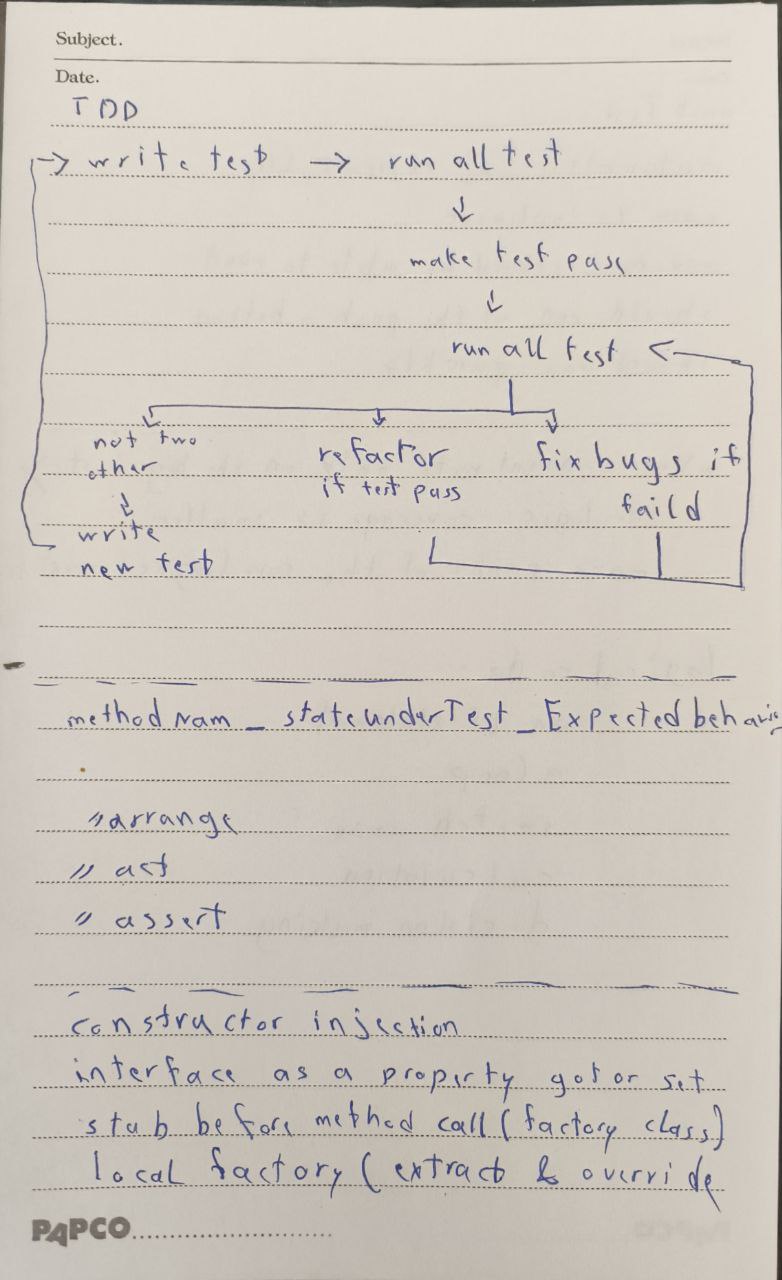 Subject.
Date.
TDD
→ write test → run all test
↓
make test pass
↓
run all test ←
not two other
↓
write new test
refactor
if test pass
fix bugs if
faild
methodNam _ stateunderTest _ Expected behavio
// arrange
// act
// assert
constructor injection
interface as a property get or set
stub before method call (factory class)
local factory (extract & override
PAPCO